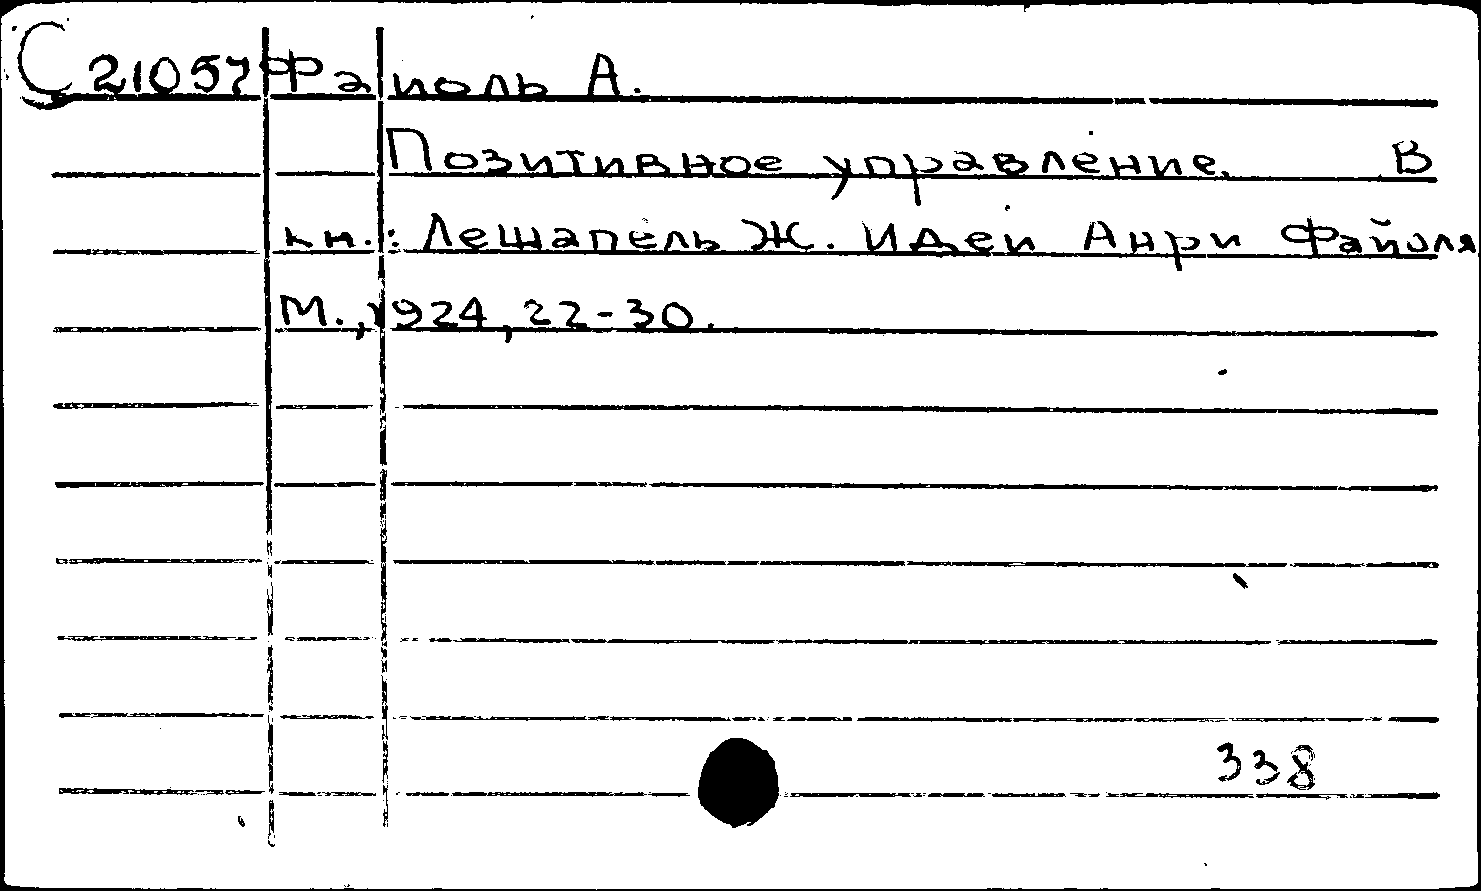 С 21057 Файоль А.
Позитивное управление. В
кн.: Лешапель Ж. Идеи Анри Файоля
М., 1924, 22-30.
338